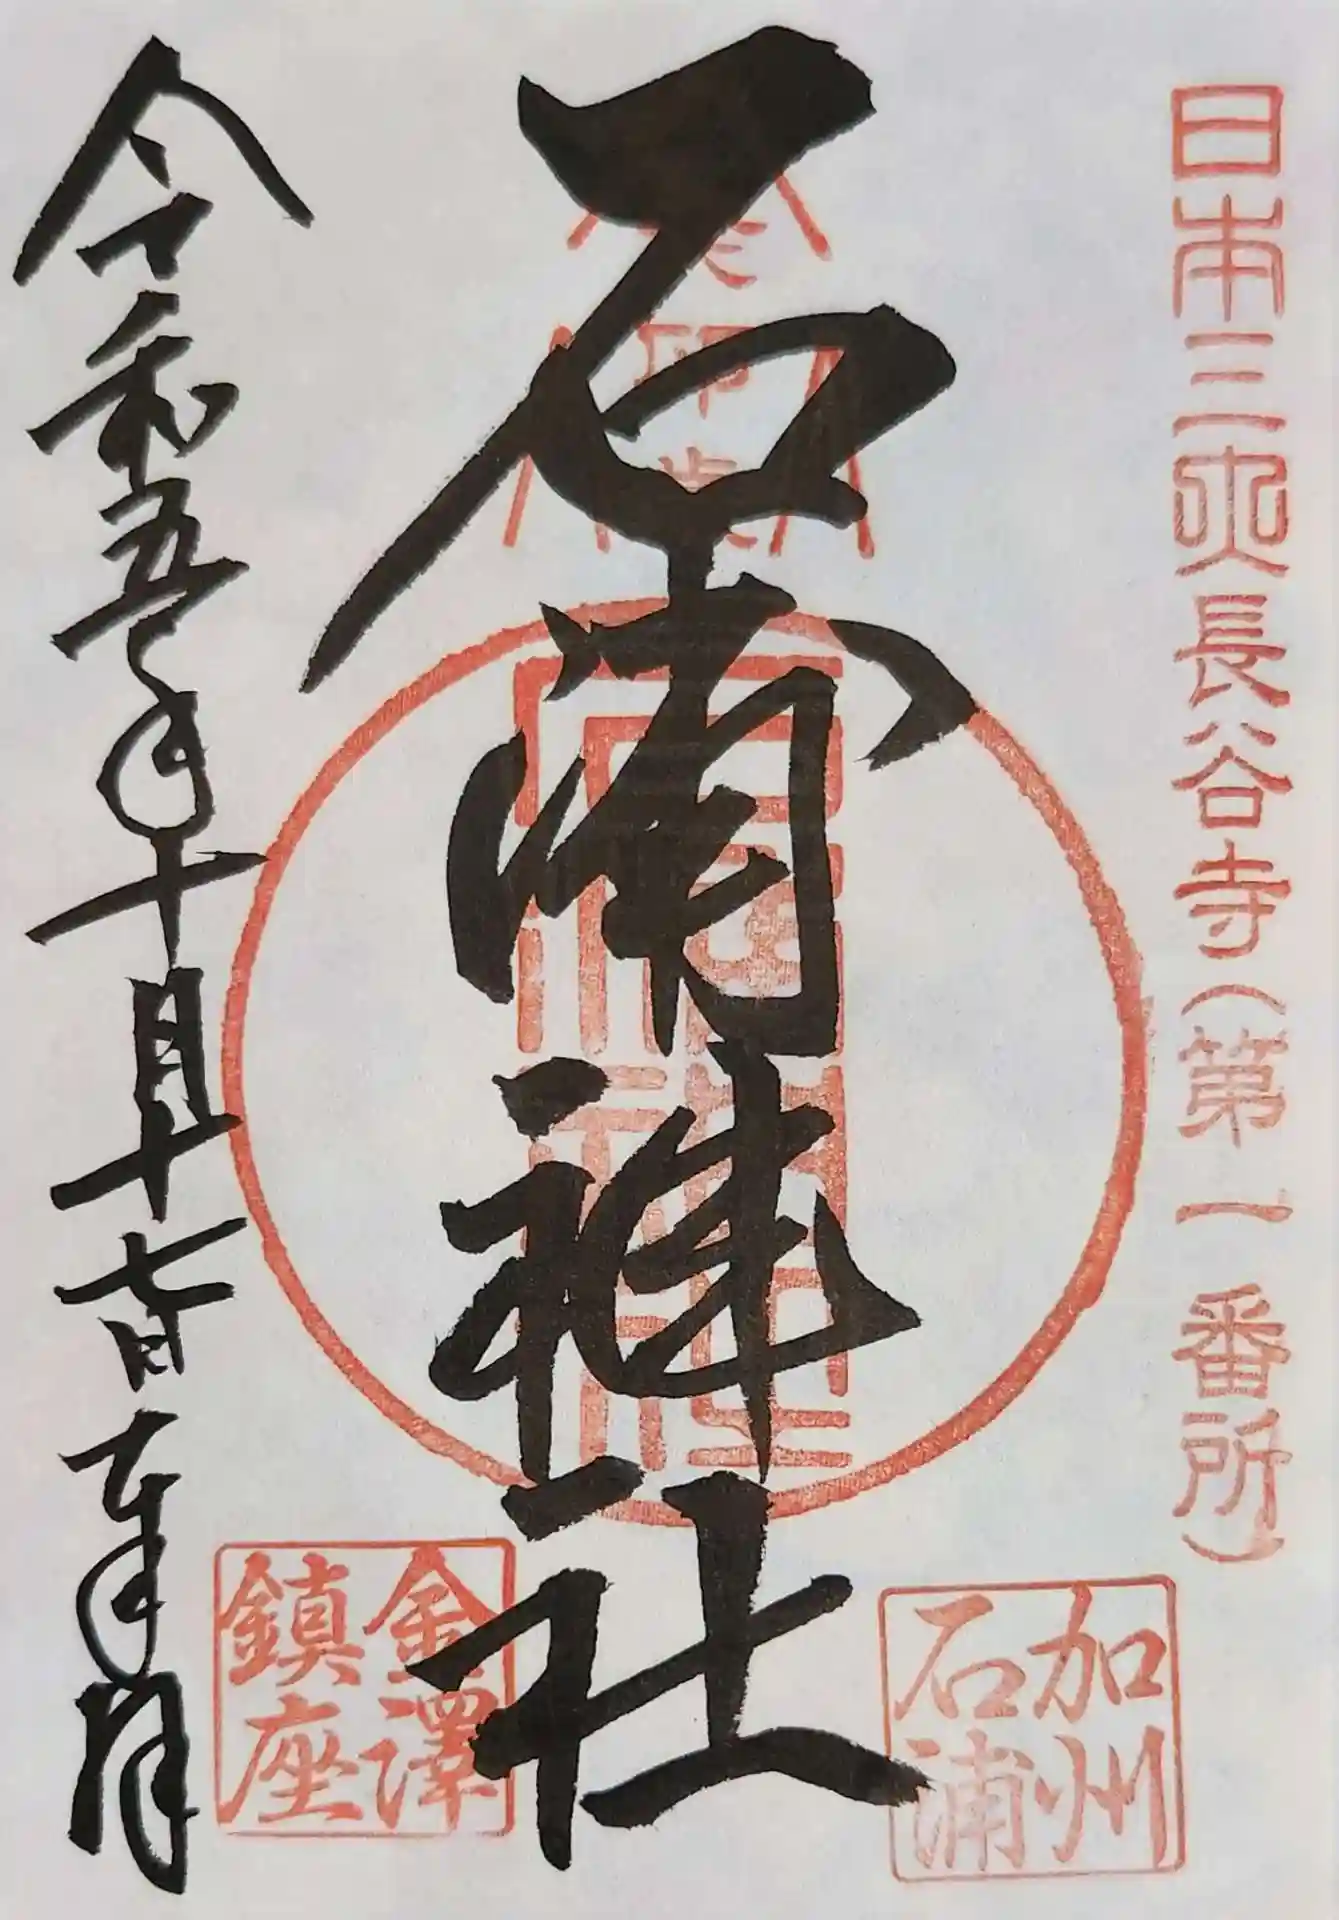 日本三大長谷寺（第一番所）
加州
石浦
石浦神社
金澤
鎮座
令和五年十月十七日奉拝